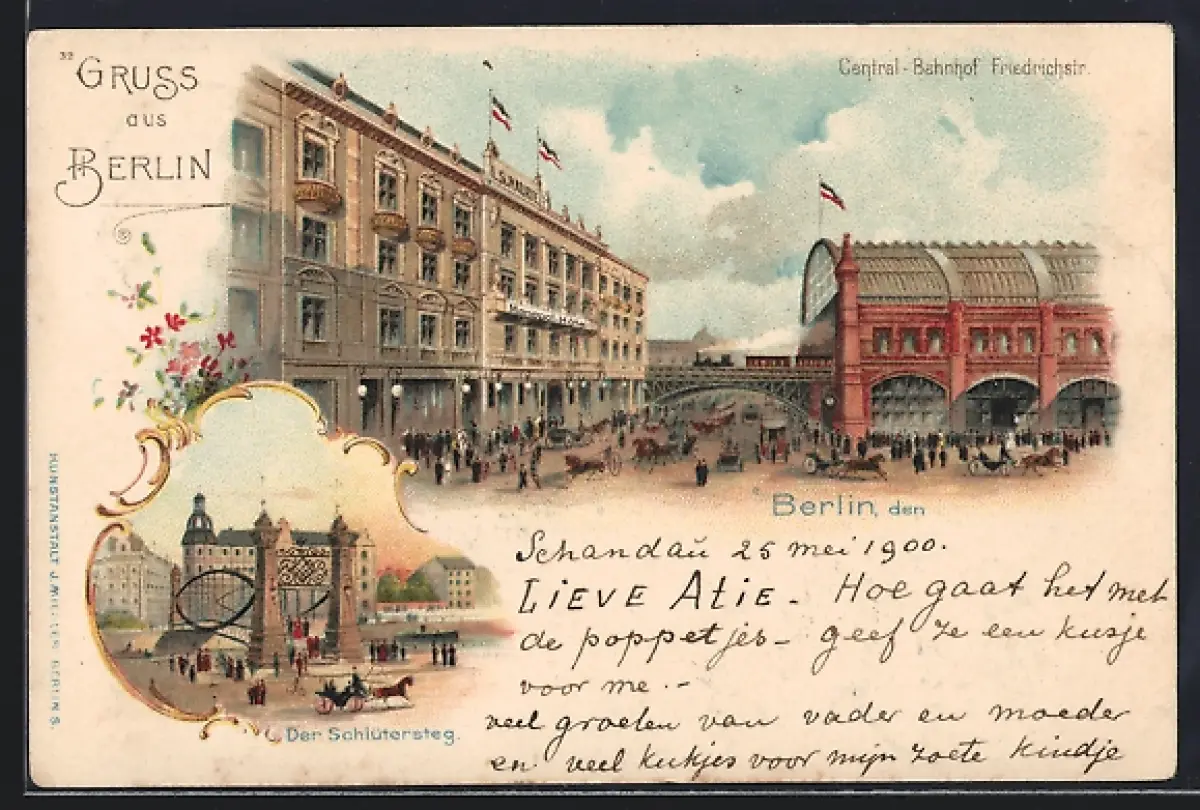 32
GRUSS
aus
BERLIN
Central-Bahnhof Friedrichstr.
Berlin, den
Schandau 25 mei 1900.
LIEVE ATIE - Hoe gaat het met
de poppetjes - geef ze een kusje
voor me. -
veel groeten van vader en moeder
en veel kukjes voor mijn zoete kindje
Der Schlütersteg.
KUNSTANSTALT J. BERLIN S.